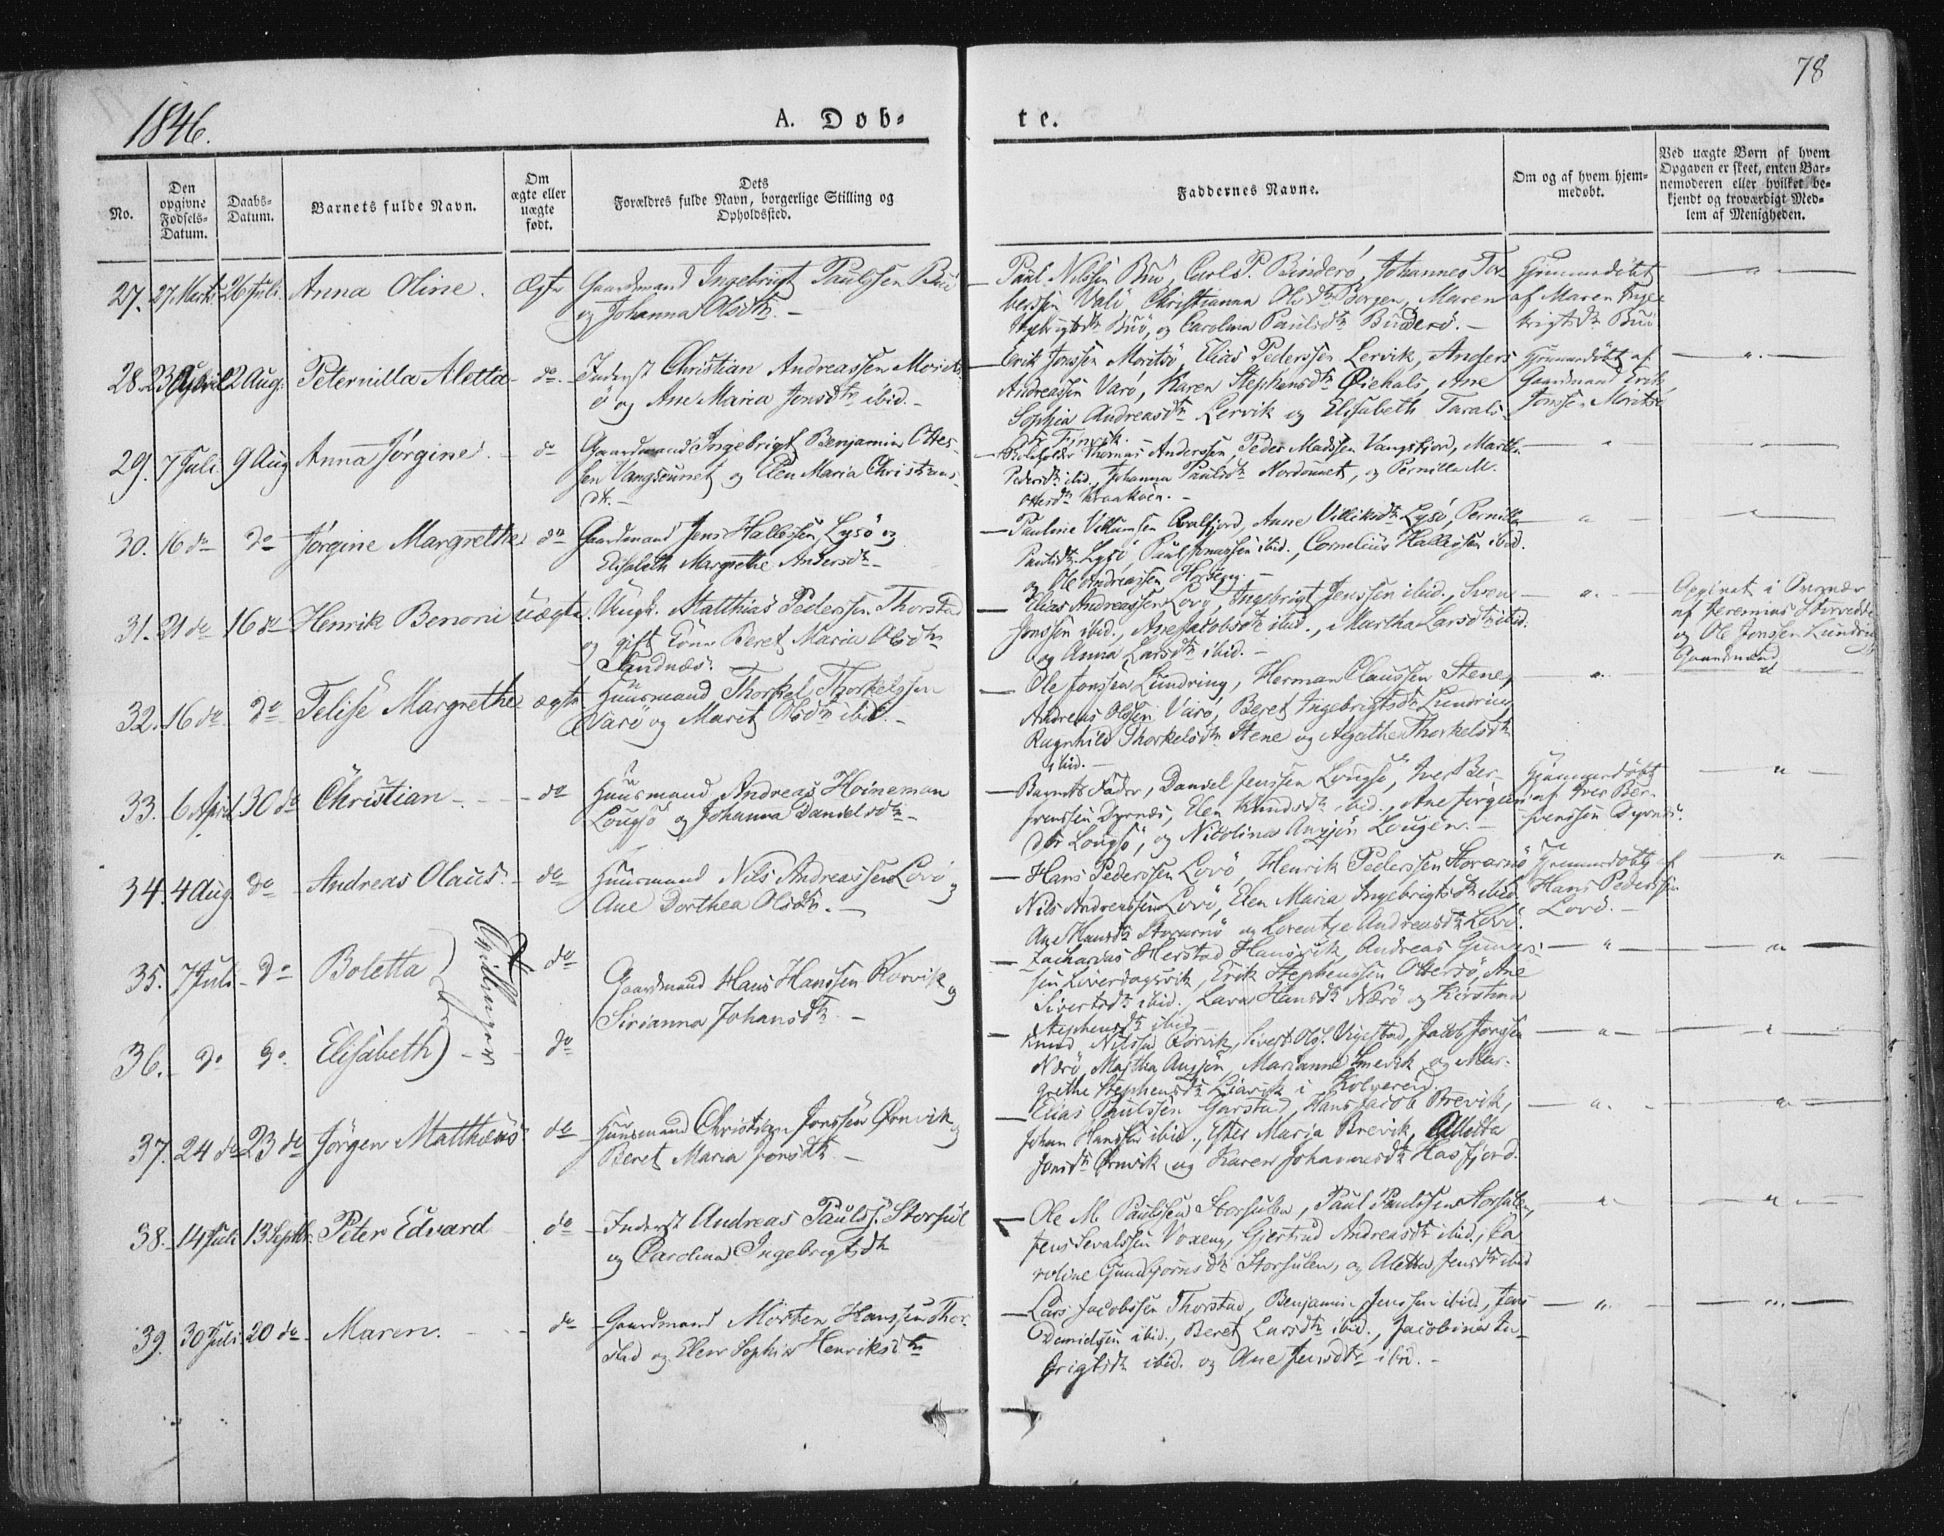 78
1846.
A. Døb-
te.
No.
Den opgivne Fødsels-Datum.
Daabs-Datum.
Barnets fulde Navn.
Om ægte eller uægte født.
Dets
Forældres fulde Navn, borgerlige Stilling og
Opholdssted.
Faddernes Navne.
Om og af hvem hjem-
medøbt.
Ved uægte Børn af hvem
Opgaven er skeet, enten Bar-
nemoderen eller hvilket be-
kjendt og troværdigt Med-
lem af Menigheden.
27. 27 Marts 26 Juli. Anna Oline. Ægte Gaardmand Ingebrigt Paulssen Buö
og Johanna Olsdtr. —
Paul Nilssen Buö, Carl P. Binderö, Johannes Tor-
berssen Vali, Christianna Olsdtr Borgen, Maren
Ingebrigtsdtr Buö, og Carolina Paulsdtr Binderö. —
Hjemmedöbt
af Maren Inge-
brigtsdtr Buö
28. 23 April 2 Aug. Peternilla Aletta do Inderst Christian Andreassen Morits-
ö og Ane Maria Jonsdtr ibid. —
Erik Jonssen Moritsö, Elias Pederssen Lervik, Anders
Andreassen Varö, Karen Stephensdtr Öiehals, Ane
Sophia Andreasdtr Lervik og Elisabeth Tarals-
Hjemmedöbt af
Gaardmand Erik
Jonssen Moritsö
29. 7 Juli 9 Aug Anna Jørgine. do Gaardmand Ingebrigt Benjamin Ottes-
sen Vangssundet og Elen Maria Christians-
dtr. —
Thomas Anderssen, Peder Madssen Vangsfjord, Marth
Pedersdtr ibid., Johanna Paulsdtr Nordsundet, og Pernilla M.
Ottesdtr Kraakøen. —
30. 16 do do Jørgine Margrethe do Gaardmand Jens Hallessen Lysö og
Elisabeth Margrethe Andersdtr —
Pauline Villumsen Qvalfjord, Anne Villiksdtr Lysö, Pernilla
Paulsdtr Lysö, Paul Jonassen ibid., Cornelius Hallessen ibid.
og Ole Andreassen Horseng. —
31. 21 do 16 do Henrik Benoni uægte. Ungk. Matthias Pederssen Thorstad
og gift Kone Beret Maria Olsdtr
Sandnæs.
Elias Andreassen Lovö, Ingebrigt Jenssen ibid., Sven
Jonssen ibid., Ane Jacobsdtr ibid., Martha Larsdtr ibid.
og Anna Larsdtr ibid. —
Opgivet i Overvær
af Jeremias
og Ole Jonssen Lundring
Gaardmænd
32. 16 do. do Felise Margrethe ægte Huusmand Thorkel Thorkelssen
Varö og Marit Olsdtr ibid. —
Ole Jonssen Lundring, Herman Claussen Stene,
Andreas Olssen Varö, Beret Ingebrigtsdtr Lundring
Ragnhild Thorkelsdtr Stene og Agathe Thorkelsdtr
ibid. —
33. 6 April 30 do Christian. do Huusmand Andreas Heineman
Lougsö og Johanna Danielsdtr —
Barnets Fader, Daniel Jenssen Lougsö, Iver Ber-
fvenssen Dyrnæs, Elen Knudsdtr ibid., Ane Jørgens-
dtr Lougsö, og Nicolina Lougen. —
Hjemmedöbt
af Iver Ber-
fvenssen Dyrnæs.
34. 4 Aug. do Andreas Olaus. do Huusmand Nils Andreassen Lovö og
Ane Dorthea Olsdtr. —
Hans Pederssen Lovö, Henrik Pederssen
Nils Andreassen Lovö, Elen Maria Ingebrigtsdtr ibid.
Ane Hansdtr og Lorentze Andreasdtr Lovö.
Hjemmedöbt af
Hans Pederssen
Lovö. —
35. 7 Juli do Boletta
Tvillinger
do
Gaardmand Hans Hanssen Rörvik og
Sirianna Johansdtr. —
Zacharias Herstad Hansvik, Andreas
sen Siverdagsvik, Erik Stephenssen Ottersö, Ane
Sivertsdtr ibid., Lava Hansdtr Nærö og Kirstina
Stephensdtr ibid
36. do do. Elisabeth do
Knud Nilssen Rörvik, Sivert Ols. Vigestad, Jacob Jørgsen
Nærö, Martha Marianna Smevik og Mar-
grethe Stephensdtr Liavik i Kolvereid.
37. 24 do 23 do Jörgen Matthæus do Huusmand Christian Jonssen Ørnvik og
Beret Maria Jonsdtr —
Elias Paulssen Garstad, Hans Jacob Brevik,
Johan Hanssen ibid., Maria Brevik, Aletta
Jonsdtr Ørnvik og Karen Johannesdtr Hasfjord.
38. 14 Juli 13 Septbr. Peter Edvard do Inderst Andreas Paulss. Storsul
og Carolina Ingebrigtsdtr
Ole M. Paulssen Storsulen, Paul Paulssen Storsulen,
Jens Sevalssen Voxeng, Gjertrud Andreasdtr ibid., Ca-
roline Gunbjørnsdtr Storsulen, og Aletta Jensdtr ibid
39. 30 Juli. 20 do Maren. do Gaardmand Morten Hanssen Thor-
stad og Elen Sophia Henriksdtr
Lars Jacobssen Thorstad, Benjamin Jenssen ibid, Jens
Danielsen ibid., Beret Larsdtr ibid., Jacobina In-
brigtsdtr ibid. og Ane Jensdtr ibid. —